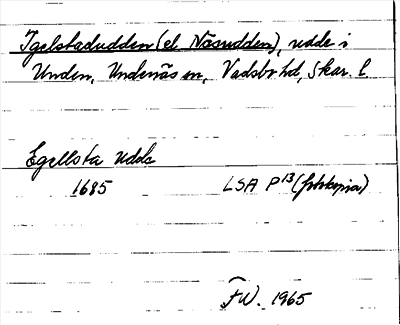 Igelstadudden (el Näsudden), udde i
Unden, Undenäs sn, Vadsbo hd, Skar. l.
Egellsta udde
1685 LSA P 13 (fotokopia)
FW. 1965